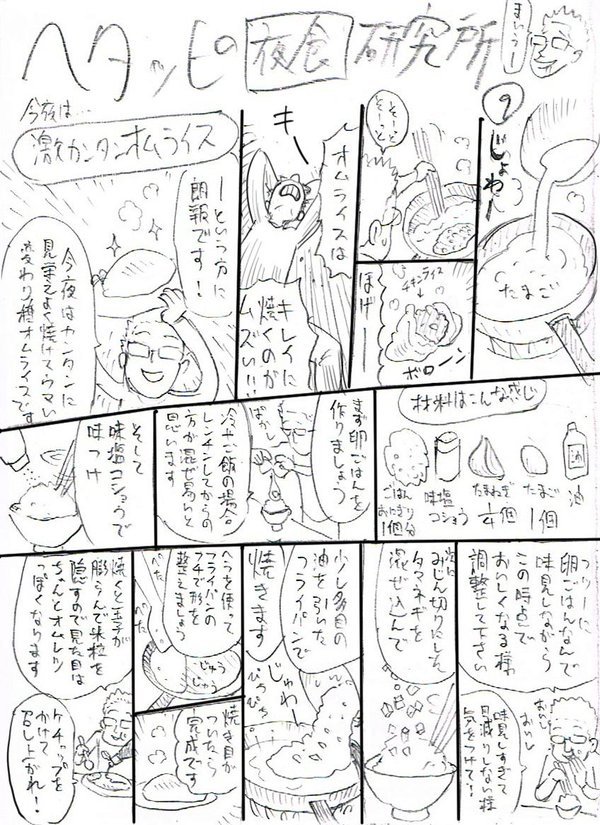 ヘタッピの夜食研究所
まいうー
⑨
じょわー
たまご
そーっと
そーっと
チキンライス
ボローン
ほげー
オムライスは
キレイに
焼くのが
ムズい!!
キー
今夜は…
激カンタンオムライス
ーという方に
朗報です!
今夜はカンタンに
見栄えよく焼けてウマい
変わり種オムライスです
材料はこんな感じ
油
たまご
1個
たまねぎ
1/4個
味塩
コショウ
ごはん
おにぎり
1個分
まず卵ごはんを
作りましょう
ぱかし
冷やご飯の場合
レンチンしてからの
方が混ぜ易いと
思います
そして
味塩コショウで
味つけ
卵ごはんなんで
味見しながら
この時点で
おいしくなる様
調整して下さい
おいし
おいし
味見しすぎて
目減りしない様
気をつけて!
次に
みじん切りにした
タマネギを
混ぜ込んで
少し多目の
油を引いた
フライパンで
焼きます
じゅわ
ぴっぴっ
ヘラを使って
フライパンの
フチで形を
整えましょう
ぺた
ぺた
じゅう
じゅう
焼き目が
ついたら
完成です
焼くと玉子が
膨らんで米粒を
隠すので見た目は
ちゃんとオムレツ
っぽくなります
ケチャップを
かけて
召し上がれ!